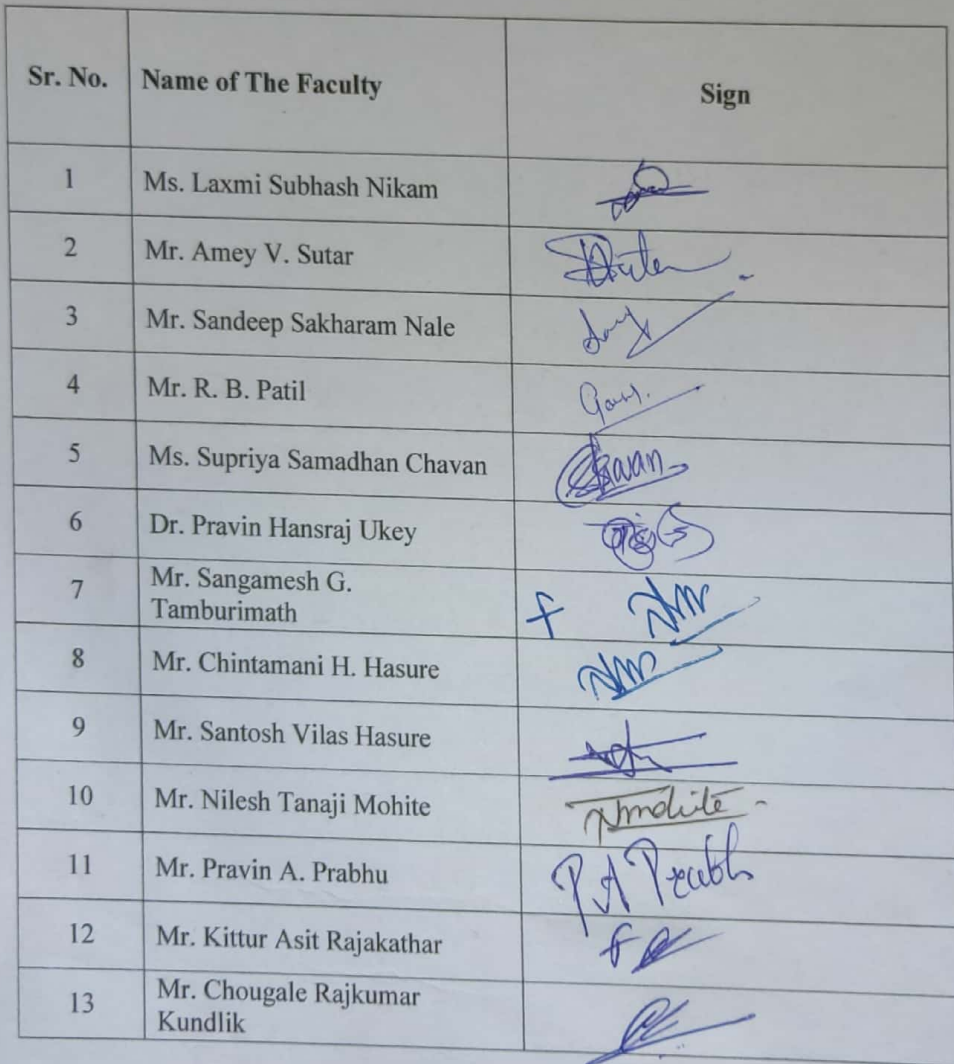 Sr. No. Name of The Faculty Sign
1 Ms. Laxmi Subhash Nikam
2 Mr. Amey V. Sutar
3 Mr. Sandeep Sakharam Nale
4 Mr. R. B. Patil
5 Ms. Supriya Samadhan Chavan
6 Dr. Pravin Hansraj Ukey
7 Mr. Sangamesh G.
Tamburimath
8 Mr. Chintamani H. Hasure
9 Mr. Santosh Vilas Hasure
10 Mr. Nilesh Tanaji Mohite
11 Mr. Pravin A. Prabhu P A Prabhu
12 Mr. Kittur Asit Rajakathar
13 Mr. Chougale Rajkumar
Kundlik